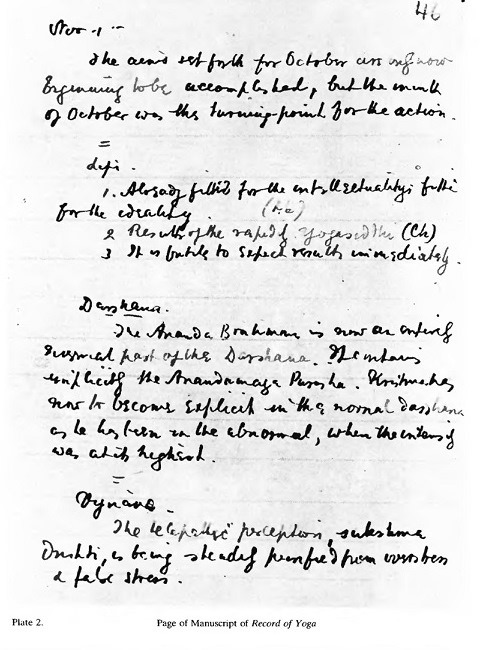 46
Nov - 1 -
The aims set forth for October are only now
beginning to be accomplished, but the month
of October was the turning-point for the action.
=
Lipi.
1. Already fitted for the intellectuality; fitted
for the ideality.
2 Result of the rapid yogasiddhi (Ch)
3 It is futile to expect results immediately.
Darshana.
The Ananda Brahman is now an entirely
universal part of the Darshana. It contains
implicitly the Anandamaya Purusha. Krishna has
now to become explicit in the normal darshana
as he has been in the abnormal, when the intensity
was at its highest.
=
Vijnana -
The telepathic perception, sukshma
Drishti, is being steadily purified from overstress
& false stress.
Plate 2. Page of Manuscript of Record of Yoga